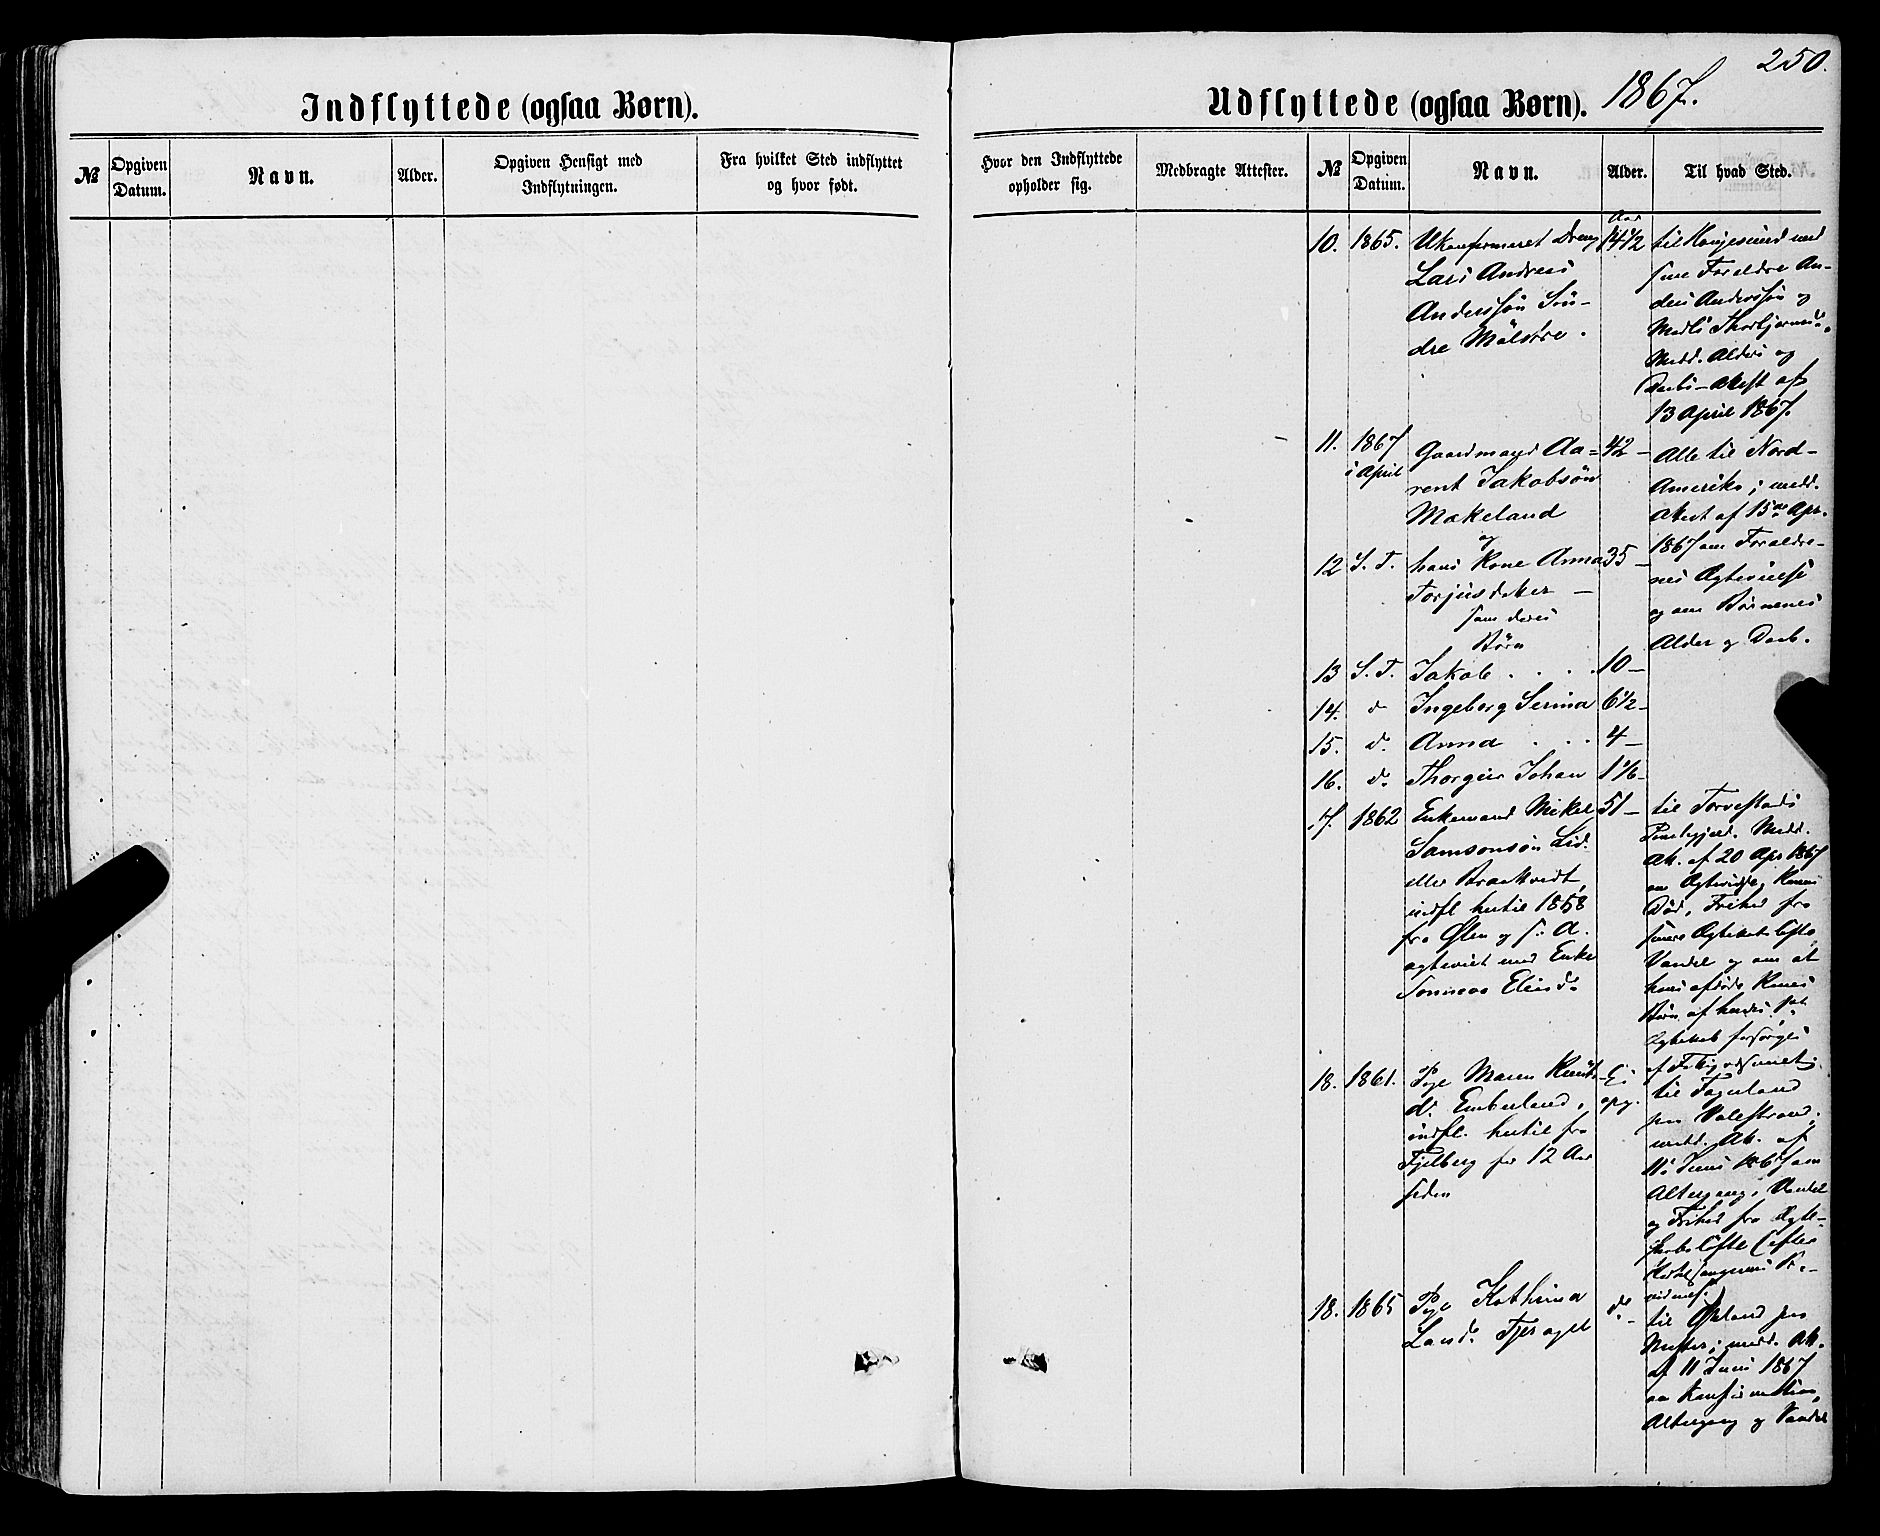 250.
Indflyttede (ogsaa Børn).
№
Opgiven Datum.
Navn.
Alder.
Opgiven Hensigt med Indflytningen.
Fra hvilket Sted indflyttet og hvor født.
Udflyttede (ogsaa Børn). 1867.
Hvor den Indflyttede opholder sig.
Medbragte Attester.
№
Opgiven Datum.
Navn.
Alder.
Til hvad Sted.
10. 1865. Ukonfirmeret Dreng
Lars Andreas
Anderssøn Søn-
dre Mølstre.
Aar
14 1/2
til Haugesund med
sine Forældre An-
ders Anderssøn og
Medd. Alders og
Daabs-Attest af
13 April 1867.
11. 1867
i April
Gaardmand Aa-
rent Jakobsøn
Makeland
og
42 -
Alle til Nord-
Amerika; medd.
Attest af 15de Apr.
1867 om Forældre-
nes Ægtevielse
og om Børnenes
Alder og Daab.
12 S. T. hans Kone Anna
Torjusdatter -
sam deres
Børn
35 -
13 S. T. Jakob . . . . 10 -
14. d Ingeborg Serina 6 1/2 -
15. d. Anna . . . 4 -
16. d. Thorgier Johan 1 1/6 -
17. 1862 Enkemand Mikel
Samsonsøn Lid.
eller Braatvedt,
indfl. hertil 1858
fra Ølen og s. A.
ægteviet med Enke
Elisd.
51 -
til Torvestads
Præstegjæld. Medd.
Att. af 20 Apr 1867
om Ægtevielse, Konens
Død, Frihed fra
senere Ægteskabsløfte,
Vandel og om at
hans afdøde Kones
Børn af hendes
Ægteskab forsørges
af
18. 1861. Pige Maren Knuts-
d. Emberland,
indfl. hertil fra
Fjelberg for 12 Aar
siden
Ei
opg.
til Fagerland
paa Valestrand;
medd. Att. af
11 Juni 1867 om
Altergang, Vandel
og Frihed fra Ægte-
skabsløfte (efter
18. 1865 Pige Kathrina
Larsd.
do -
til Økland paa
Moster; medd. Att.
af 11 Juni 1867
om Konfirmation,
Altergang og Vandel